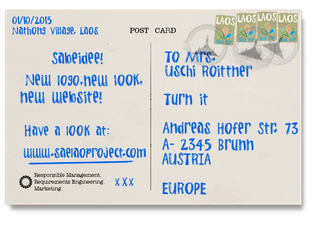 01/10/2015
Nathong Village, Laos
POST CARD
LAOS LAOS LAOS LAOS
Sabeidee!
New logo, new look,
new website!
Have a look at:
www.saelaoproject.com
Responsible Management.
Requirements Engineering.
Marketing.
XXX
To Mrs.
Uschi Roittner
Turn it
Andreas Hofer Str. 73
A- 2345 Brunn
AUSTRIA
EUROPE